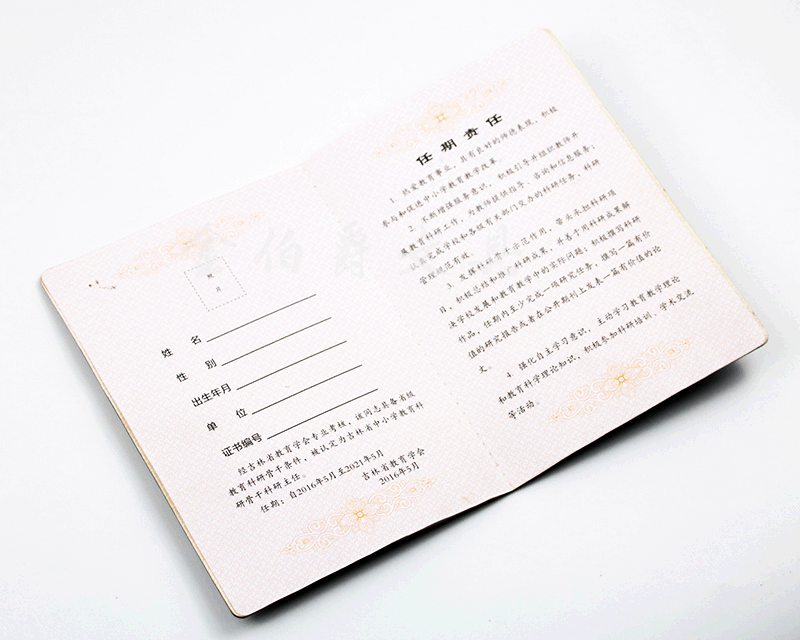 照
片
姓 名
性 别
出生年月
单 位
证书编号
经吉林省教育学会专业考核，该同志具备省级
教育科研骨干条件，被认定为吉林省中小学教育科
研骨干科研主任。
任期：自2016年5月至2021年5月
吉林省教育学会
2016年5月
任 期 责 任
1. 热爱教育事业，具有良好的师德表现，积极
参与和促进中小学教育教学改革。
2. 不断增强服务意识，积极引导并组织教师开
展教育科研工作，为教师提供指导、咨询和信息服务；
认真完成学校和各级有关部门交办的科研任务，科研
管理规范有效。
3. 发挥科研骨干示范作用，带头承担科研项
目，积极总结和推广科研成果，并善于用科研成果解
决学校发展和教育教学中的实际问题；积极撰写科研
作品，任期内至少完成一项研究任务，撰写一篇有价
值的研究报告或者在公开期刊上发表一篇有价值的论
文。
4. 强化自主学习意识，主动学习教育教学理论
和教育科学理论知识，积极参加科研培训、学术交流
等活动。